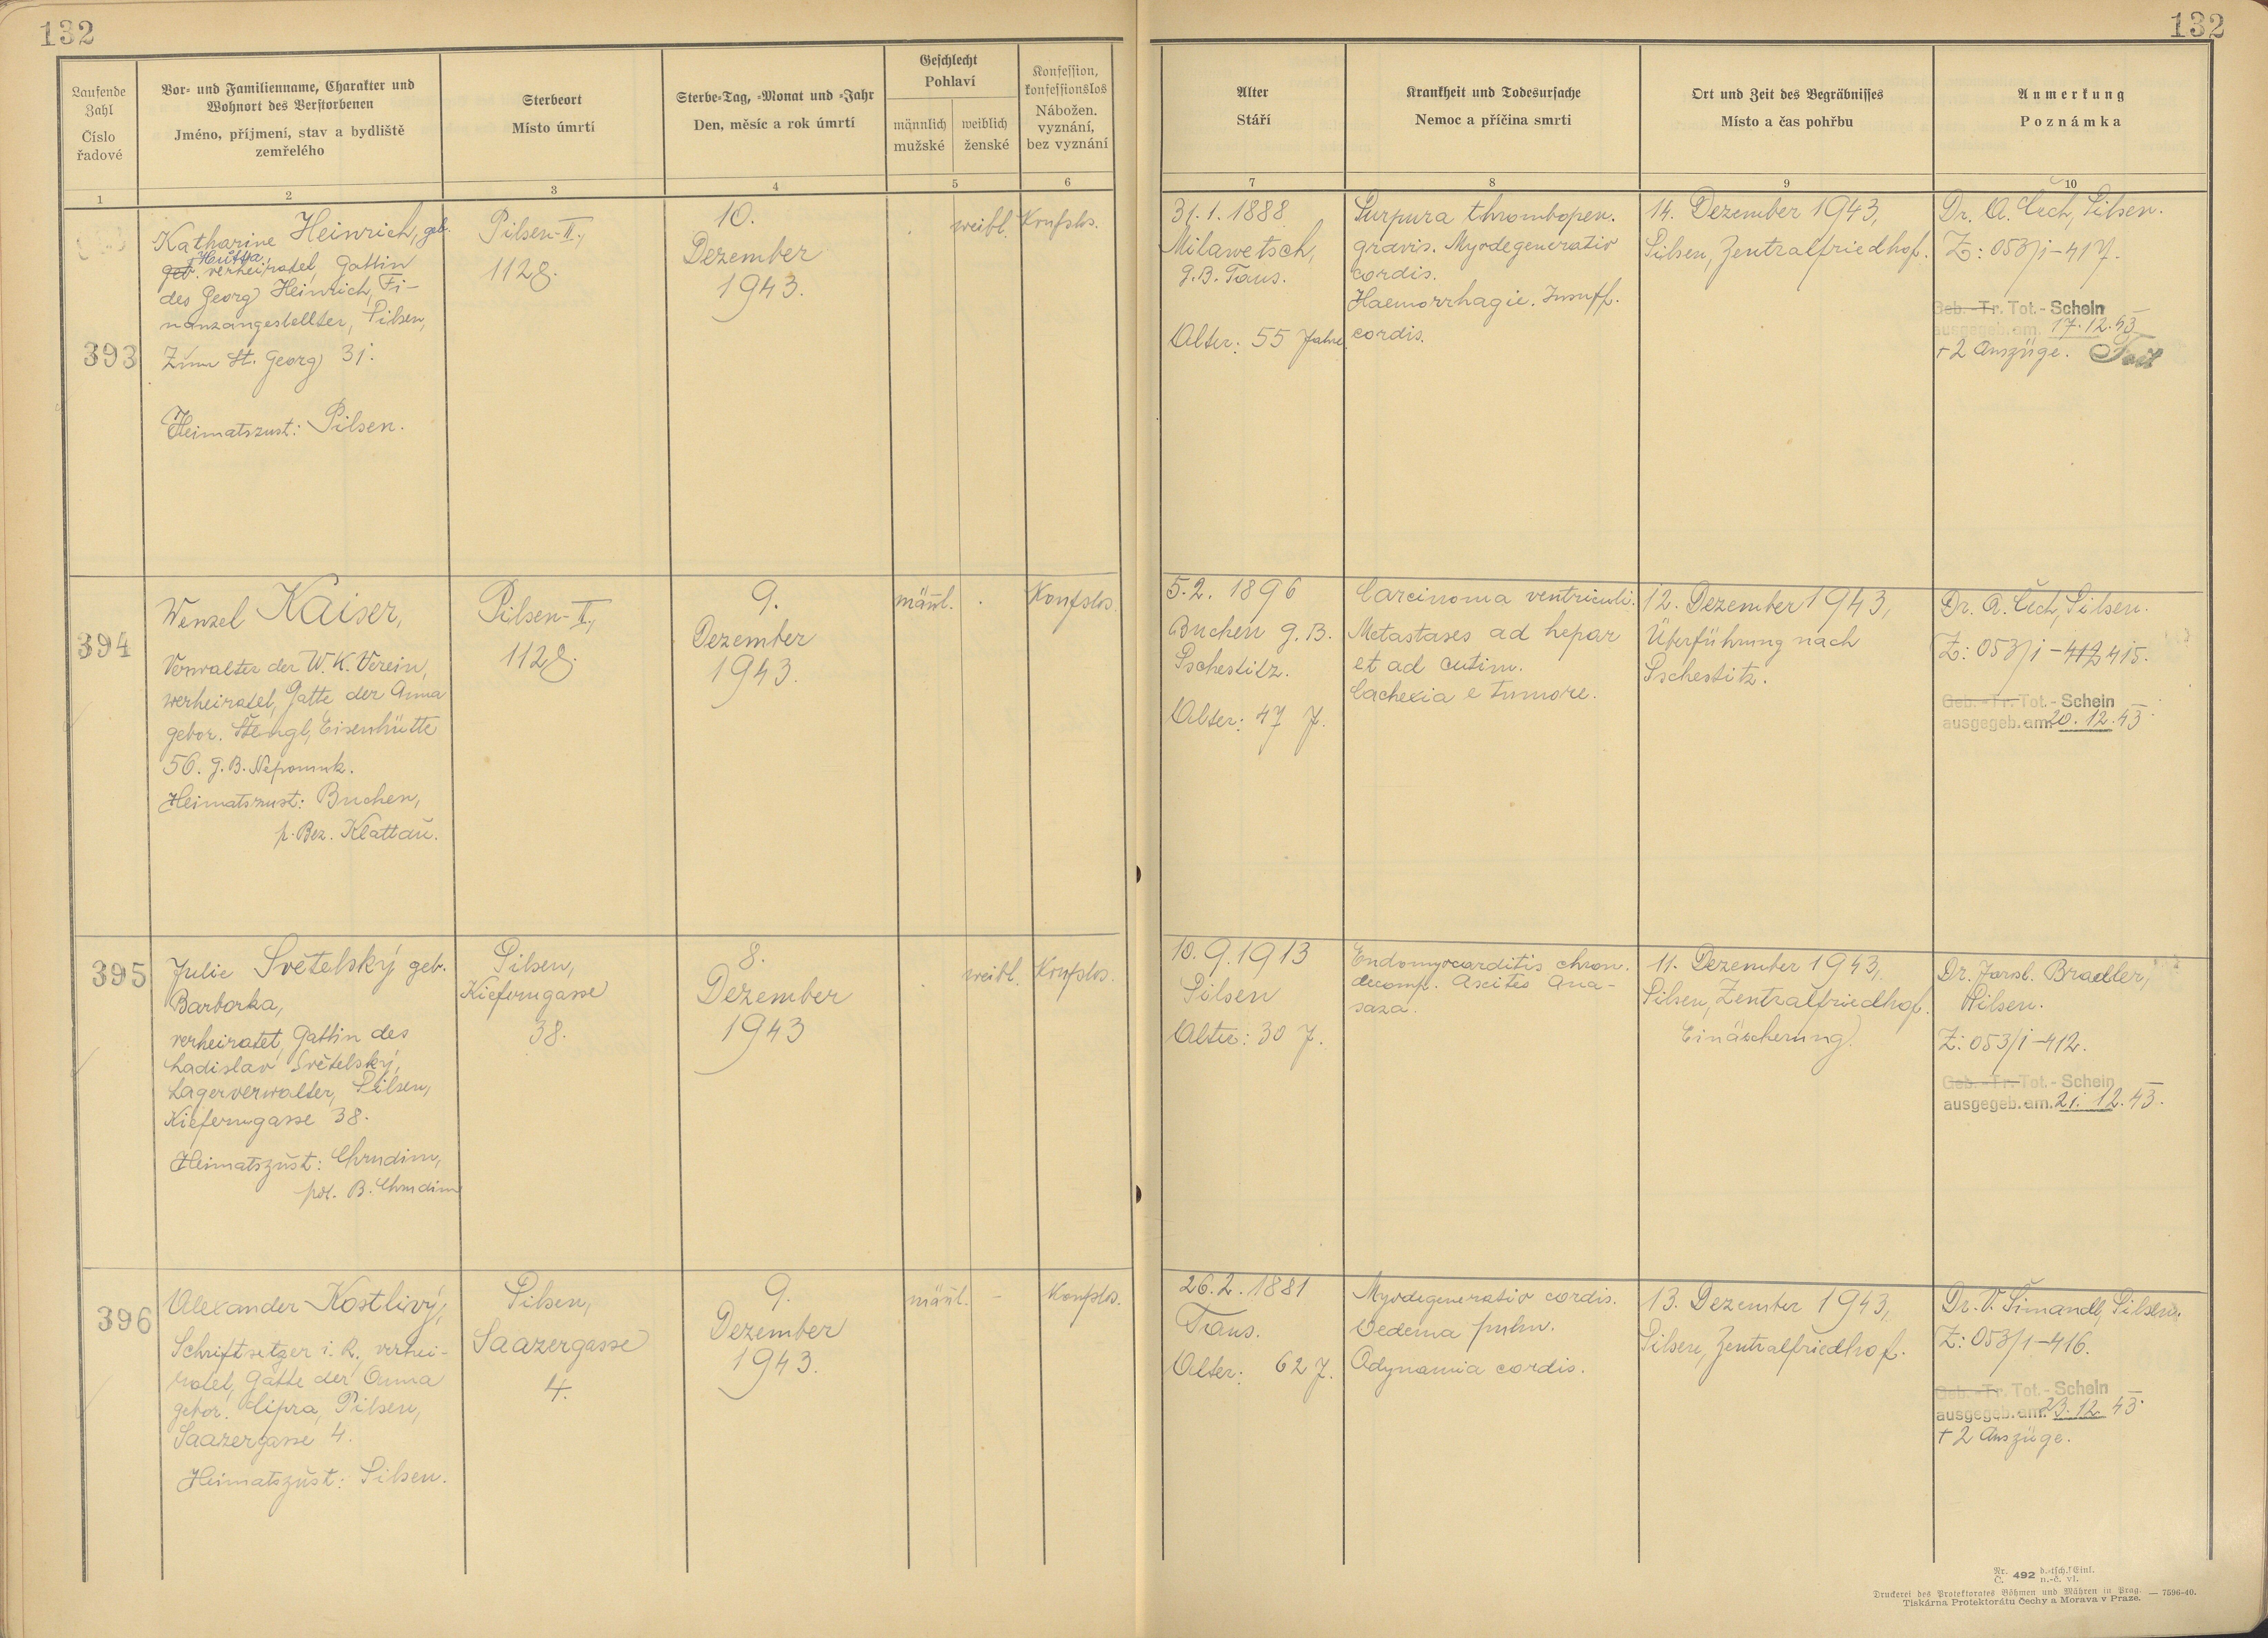 132
132
Laufende
Zahl
Číslo
řadové
Vor- und Familienname, Charakter und
Wohnort des Verstorbenen
Jméno, příjmení, stav a bydliště
zemřelého
Sterbeort
Místo úmrtí
Sterbe-Tag, -Monat und -Jahr
Den, měsíc a rok úmrtí
Geschlecht
Pohlaví
männlich
mužské
weiblich
ženské
Konfession,
konfessionslos
Nábožen.
vyznání,
bez vyznání
Alter
Stáří
Krankheit und Todesursache
Nemoc a příčina smrti
Ort und Zeit des Begräbnisses
Místo a čas pohřbu
Anmerkung
Poznámka
1
2
3
4
5
6
7
8
9
10
393
Katharine Heinrich, geb.
geb. verheiratet, Gattin
des Georg Heinrich, Fi-
nanzangestellter, Pilsen,
Zum St. Georg 31.
Heimatszust: Pilsen.
Pilsen-II.,
1128.
10.
Dezember
1943.
weibl.
Konfslos.
31. 1. 1888
Milawetsch,
G.B. Taus.
Alter: 55 Jahre
Purpura thrombopen.
gravis. Myodegeneratio
cordis.
Haemorrhagie. Insuff.
cordis.
14. Dezember 1943,
Pilsen, Zentralfriedhof.
Dr. A. Čech, Pilsen.
Z: 053/1-417.
Geb. -Tr. Tot. - Schein
ausgegeb. am. 17. 12. 43
+ 2 Auszüge.
394
Wenzel Kaiser,
Verwalter der W. K. Verein,
verheiratet, Gatte der Anna
gebor. Stengl, Eisenhütte
56. G. B. Nepomuk.
Heimatszust: Buchen,
p. Bez. Klattau.
Pilsen-II.,
1128.
9.
Dezember
1943.
männl.
Konfslos.
5. 2. 1896
Buchen G. B.
Pschestitz.
Alter: 47 J.
Carcinoma ventriculi.
Metastases ad hepar
et ad cutim.
Cachexia e tumore.
12. Dezember 1943,
Überführung nach
Pschestitz.
Dr. A. Čech, Pilsen.
Z: 053/1-412 415.
Geb. -Tr. Tot. - Schein
ausgegeb. am. 20. 12. 43
395
Julie Světelský geb.
Barborka,
verheiratet, Gattin des
Ladislav Světelský,
Lagerverwalter, Pilsen,
Kieferngasse 38.
Heimatszust: Chrudim,
pol. B. Chrudim
Pilsen,
Kieferngasse
38.
8.
Dezember
1943
weibl.
Konfslos.
10. 9. 1913
Pilsen
Alter: 30 J.
Endomyocarditis chron.
decomp. Ascites Ana-
saza.
11. Dezember 1943,
Pilsen, Zentralfriedhof.
Einäscherung.
Dr. Jarosl. Bradler,
Pilsen.
Z: 053/1-412.
Geb. -Tr. Tot. - Schein
ausgegeb. am. 21. 12. 43.
396
Alexander Kostlivý,
Schriftsetzer i. R., verhei-
ratet, Gatte der Anna
gebor. Cipra, Pilsen,
Saazergasse 4.
Heimatszust: Pilsen.
Pilsen,
Saazergasse
4.
9.
Dezember
1943.
männl. -
Konfslos.
26. 2. 1881
Taus.
Alter: 62 J.
Myodegeneratio cordis.
Oedema pulm.
Adynamia cordis.
13. Dezember 1943,
Pilsen, Zentralfriedhof.
Dr. V. Šimandl, Pilsen.
Z: 053/1-416.
Geb. -Tr. Tot. - Schein
ausgegeb. am. 23. 12. 43.
+ 2 Auszüge.
Nr. 492 d.-tsch./Einl.
Č. n.-č. vl.
Druckerei des Protektorates Böhmen und Mähren in Prag. — 7596-40.
Tiskárna Protektorátu Čechy a Morava v Praze.